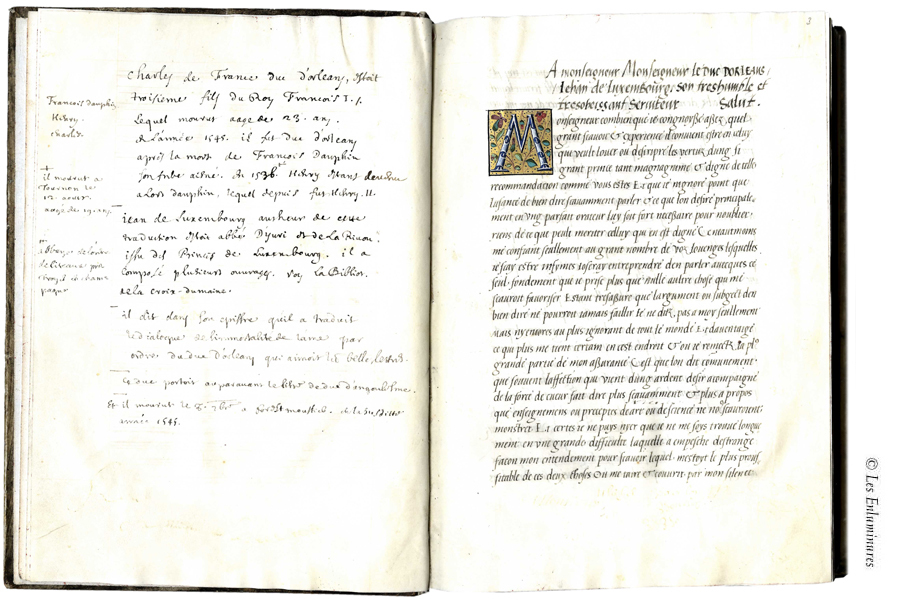 Charles de France duc d'orleans, estoit
troisieme fils du Roy Francois I.
Lequel mourut aage de 23. an.
en l'année 1545. il fut duc d'orleans
apres la mort de Francois Dauphin
son frere aisne. En 1536 Henry estant devenu
alors dauphin, lequel depuis fut Henry II.
Francois dauphin
Henry.
charles.
il mourut a
Tournon le
12 aoust
aagé de 19 ans
Jean de Luxembourg autheur de cette
traduction estoit abbé D'yuri et de La Riuou
issu des Princes de Luxembourg. il a
composé plusieurs ouurages. voy la Biblioth.
de la croix-du maine.
il dit dans son epistre quil a traduit
le dialogue de l'immortalite de l'ame par
ordre du duc d'orleans qui aimoit les belles lettres.
Ce duc portoit auparauant le titre de duc d'angoulesme.
Et il mourut le
année 1545.
3
A monseigneur Monseigneur le DUC DORLEANS,
Iehan de Luxembourg, son treshumble et
tresobeissant seruiteur Salut.
Monseigneur combien que ie congnoisse assez, quel
grant scauoir & experience doiuent estre en celuy
qui veult louer ou descripre les vertuz dung si
grant prince tant magnagnime & digne de telle
recommandation comme vous estes Et que ie ignore point que
la science de bien dire scauamment parler & ce que lon desire principale
ment en vng parfait orateur luy soit fort necessaire pour noublier
riens de ce que peult meriter celluy qui en est digne Ce neantmoins
me confiant seullement au grant nombre de voz louenges lesquelles
ie scay estre infynies ioseray entreprendre den parler auecques ce
seul fondement que ie prise plus que nulle aultre chose qui me
scauroit fauoriser Estant tresasseure que largument ou subgect den
bien dire ne pourroit iamais faillir ie ne dis, pas a moy seullement
Mais nyencores au plus ignorant de tout le monde Et dauentaige
ce qui plus me tient certain en cest endroit & ou ie remectz la pl9
grande partie de mon asseurance Cest que lon dit communement
que souuent laffection qui vient dung ardent desir acompaigné
de la force de cueur fait dire plus scauamment & plus a propos
que enseignemens ou preceptes de are ou de science ne no9 scauroient
monstrer Et certes ie ne puys nyer que ie ne me soys trouué longue
ment en vne grande difficulté laquelle a empesché destrange
facon mon entendement pour scauoir lequel mestoyt le plus prouf
fitable de ces deux choses Ou me taire & couurir par mon silence
© Les Enluminures